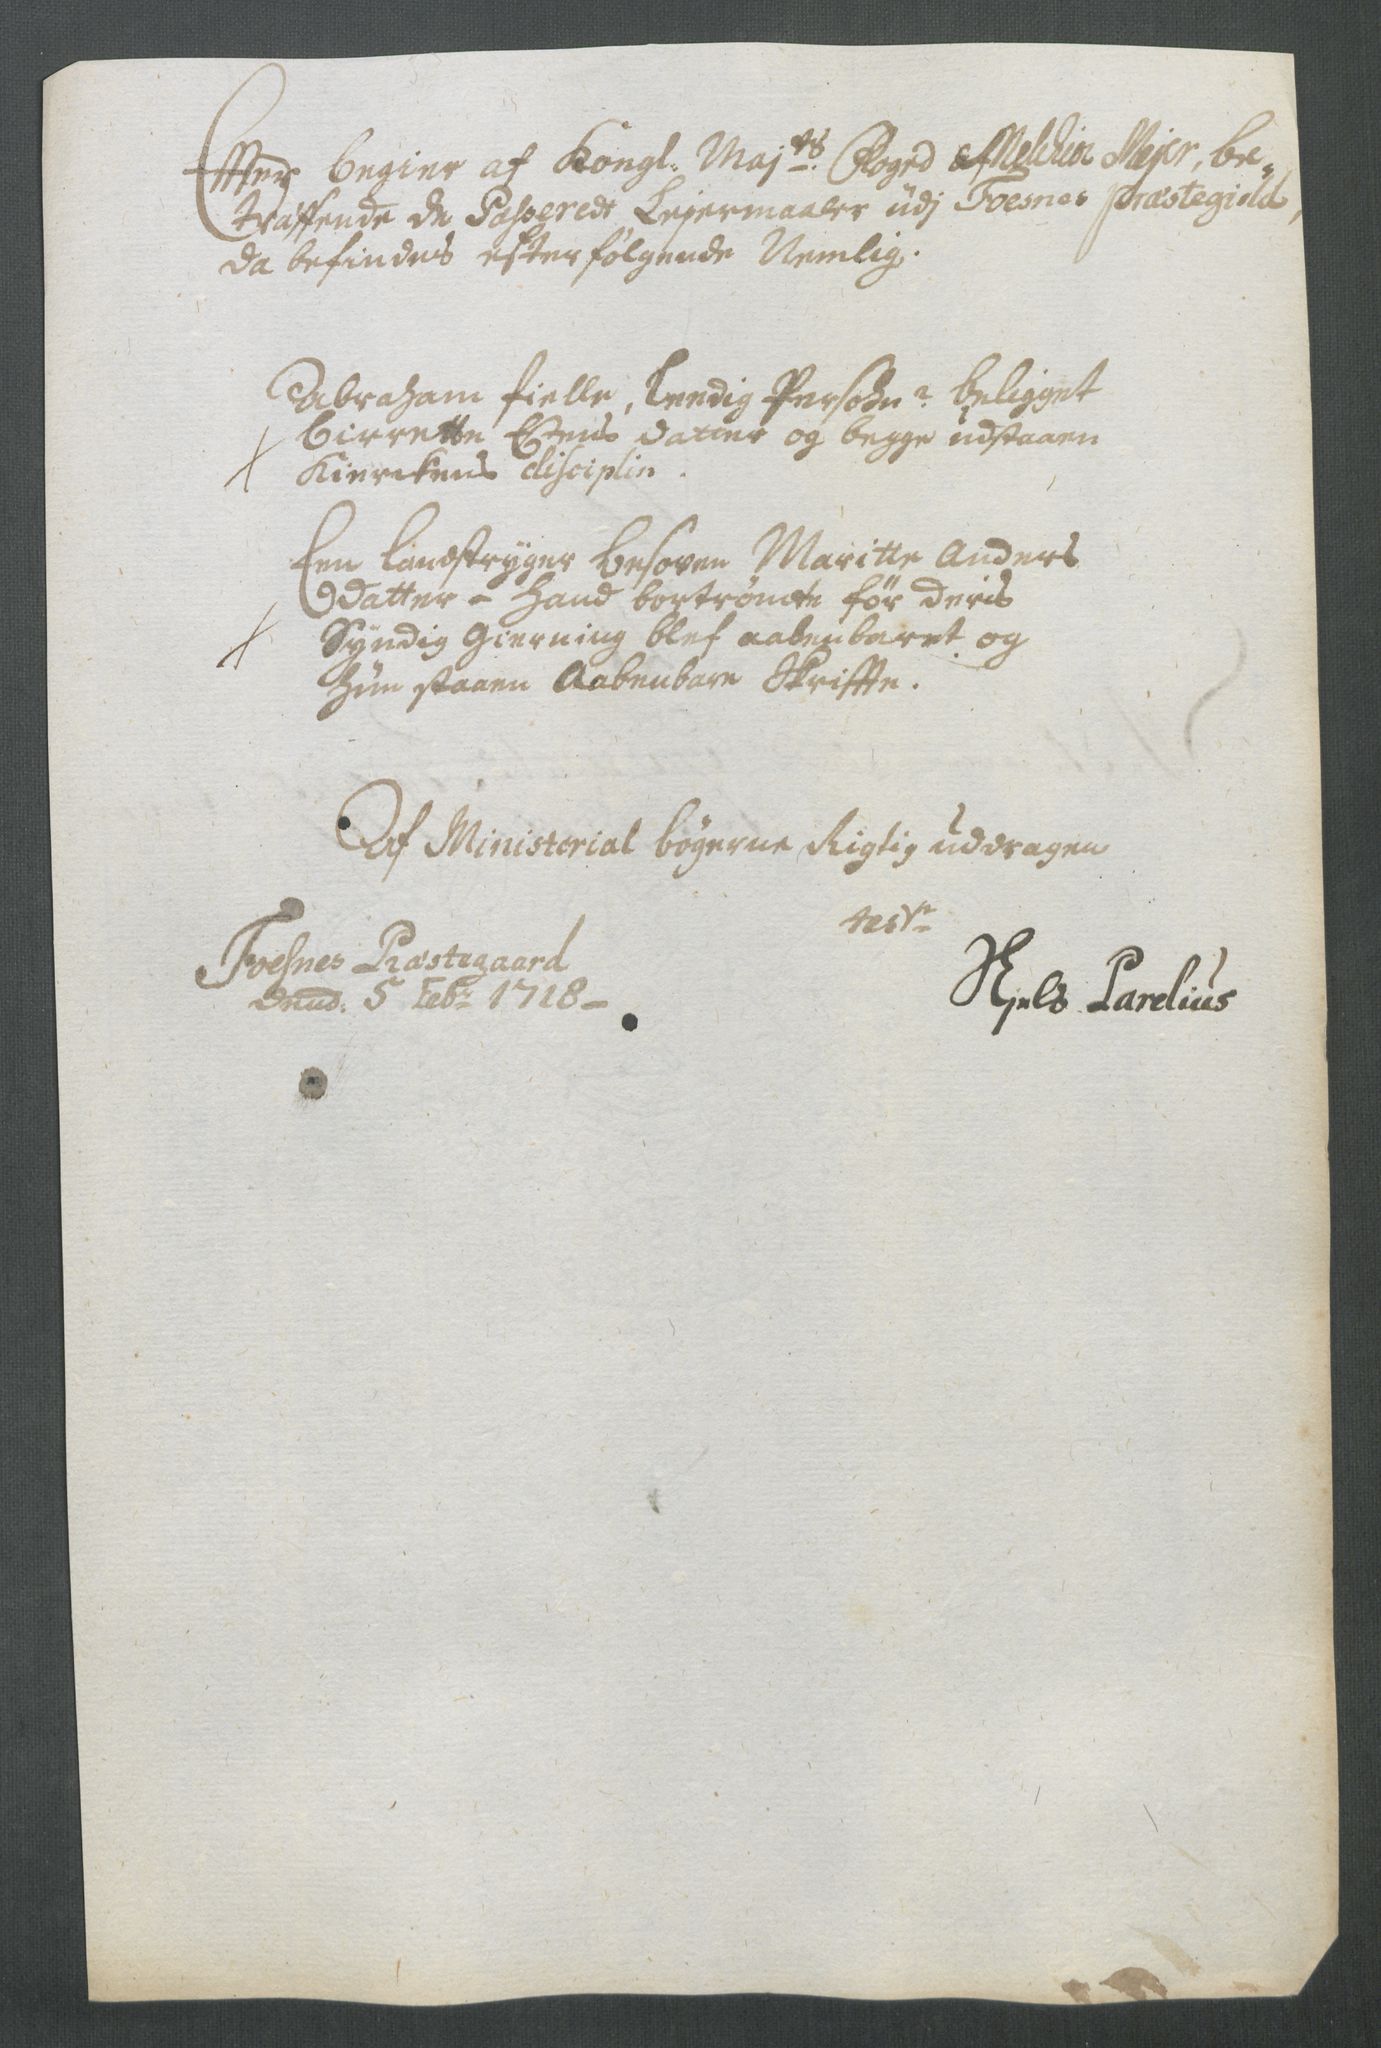 Effter begier af Kongl: Maj:ts Foged Melchior Mejer, be-
träffende de Passerede Leÿermaaler üdj Foesnes præstegield,
da befindes efterfølgende Nemlig.
Abraham fielle, Leedig Persohn: beligget
birrette Estens datter og begge udstaaen
Kierckens disciplin.
Een landstrÿger besoven Maritte Anders
Datter - hand bortrømte för deris
Sÿndig Gierning blef aabenbaret og
hün staaen Aabenbare Skriffte.
Af Ministerial bögerne Rigtig uddragen
test:
Foesnes Præstegaard
5 Feb: 1718 -
Njels Parelius